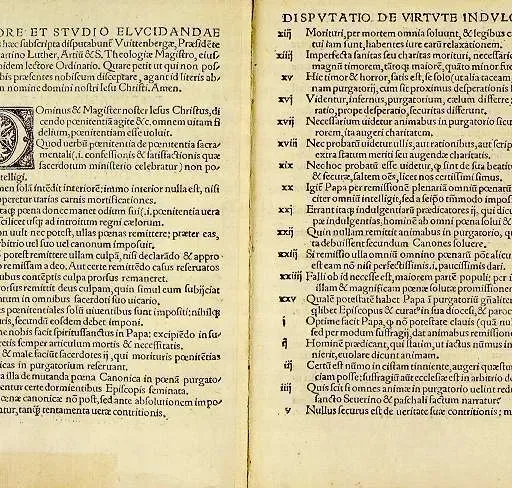 ORE ET STVDIO ELVCIDANDAE
s hæc subscripta disputabunť Vuittenbergæ, Præsidēte
artino Luther, Artiū & S. Theologiæ Magistro, eius-
bidem lectore Ordinario. Quare petit ut qui non pos-
bis præsentes nobiscum disceptare, agant id literis ab-
nomine domini nostri Iesu Christi. Amen.
DOminus & Magister noster Iesus Christus, di-
cendo pœnitentiā agite &c. omnem uitam fi
delium, pœnitentiam esse uoluit.
Quod uerbū pœnitentia de pœnitentia sacra-
mentali (.i. confessionis & satisfactionis quæ
sacerdotum ministerio celebratur) non po-
telligi.
men solā intēdit interiorē; immo interior nulla est, nisi
operetur uarias carnis mortificationes.
taqȝ pœna donec manet odium sui (.i. pœnitentia uera
scilicet usqȝ ad introitum regni cælorum.
n uult nec potest, ullas pœnas remittere; præter eas,
rbitrio uel suo uel canonum imposuit.
potest remittere ullam culpā, nisi declarādo & appro-
o remissam a deo. Aut certe remittēdo casus reseruatos
tibus contēptis culpa prorsus remaneret.
rorsus remittit deus culpam, quin simul eum subijciat
atum in omnibus sacerdoti suo uicario.
s pœnitentiales solū uiuentibus sunt impositi; nihilqȝ
uris, secundū eosdem debet imponi.
ne nobis facit spiritussanctus in Papa; excipiēdo in su-
cretis semper articulum mortis & necessitatis.
& male faciūt sacerdotes ij, qui morituris pœnitētias
icas in purgatorium reseruant.
a illa de mutanda pœna Canonica in pœnā purgato-
entur certe dormientibus Episcopis seminata.
pœnæ canonicæ nō post, sed ante absolutionem impo-
ntur, tanqȝ tentamenta ueræ contritionis.
DISPVTATIO DE VIRTVTE INDVLG
xiij Morituri, per mortem omnia soluunt, & legibus c
tui iam sunt, habentes iure earū relaxationem.
xiiij Imperfecta sanitas seu charitas morituri, necessario
magnū timorem, tātoqȝ maiorē, quāto minor fu
xv Hic timor & horror, satis est, se solo (ut alia taceam
nam purgatorij, cum sit proximus desperationis h
xvj Videntur, infernus, purgatorium, cælum differre;
ratio, prope desperatio, securitas differunt.
xvij Necessarium uidetur animabus in purgatorio sicu
rorem, ita augeri charitatem.
xviij Nec probatū uidetur ullis, aut rationibus, aut script
extra statum meriti seu augendæ charitatis.
xix Nec hoc probatū esse uidetur, qȝ sint de sua beatitu
& securæ, saltem oēs, licet nos certissimi simus.
xx Igiť Papa per remissionē plenariā omniū pœnarū
citer omniū intelligit, sed a seipō tmmodo impos
xxj Errant itaqȝ indulgentiarū prædicatores ij, qui dicu
pæ indulgentias, hominē ab omni pœna solui &
xxij Quin nullam remittit animabus in purgatorio, qu
ta debuissent secundum Canones soluere.
xxiij Si remissio ulla omniū omnino pœnarū pōt alicu
est eam nō nisi perfectissimis .i. paucissimis dari.
xxiiij Falli ob id necesse est, maiorem partē populi; per i
illam & magnificam pœnæ solutæ promissionem
xxv Qualē potestatē habet Papa ī purgatoriū gñaliter
qlibet Episcopus & curatꝰ in sua diocesi, & paroc
i Optime facit Papa, qȝ nō potestate clauis (quā nul
sed per modum suffragij, dat animabus remission
ij Hominē prædicant, qui statim, ut iactus nūmus in
nierit, euolare dicunt animam.
iij Certū est nūmo in cistam tinniente, augeri quæstum
ciam posse; suffragiū aūt ecclesiæ est in arbitrio de
iiij Quis scit si omnes animæ in purgatorio uelint rede
sancto Seuerino & paschali factum narratur.
v Nullus securus est de ueritate suæ contritionis; m